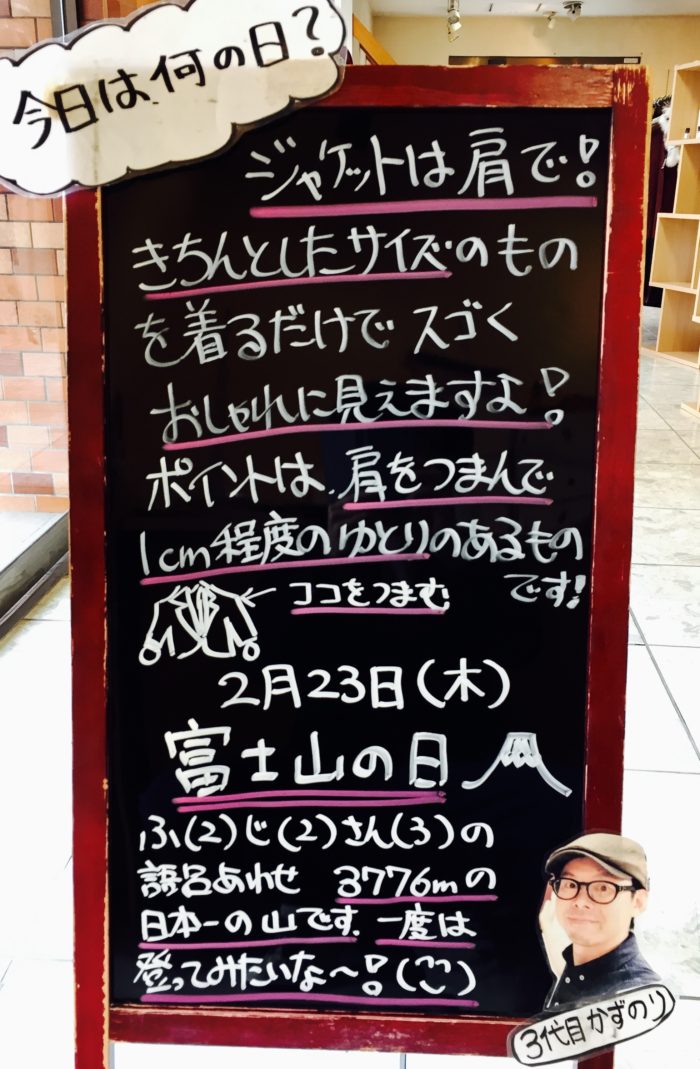 今日は何の日？
ジャケットは肩で！
きちんとしたサイズのもの
を着るだけでスゴく
おしゃれに見えますよ！
ポイントは、肩をつまんで
1cm程度のゆとりのあるもの
です！
ココをつまむ
2月23日(木)
富士山の日
ふ(2)じ(2)さん(3)の
語呂あわせ 3776mの
日本一の山です。一度は
登ってみたいな〜！(こ)
3代目かずのり